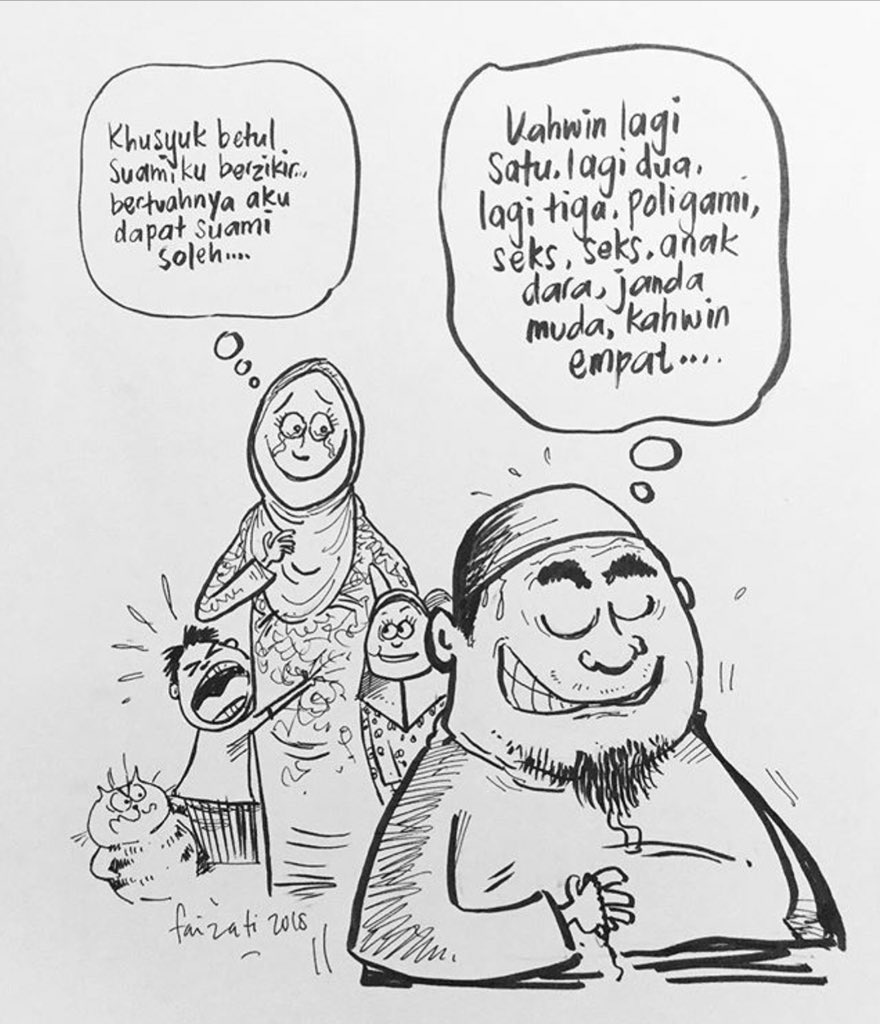 Khusyuk betul
Suamiku berzikir...
bertuahnya aku
dapat suami
soleh....
Kahwin lagi
satu. lagi dua.
lagi tiga. poligami,
seks, seks. anak
dara, janda
muda, kahwin
empat....
faizati 2018